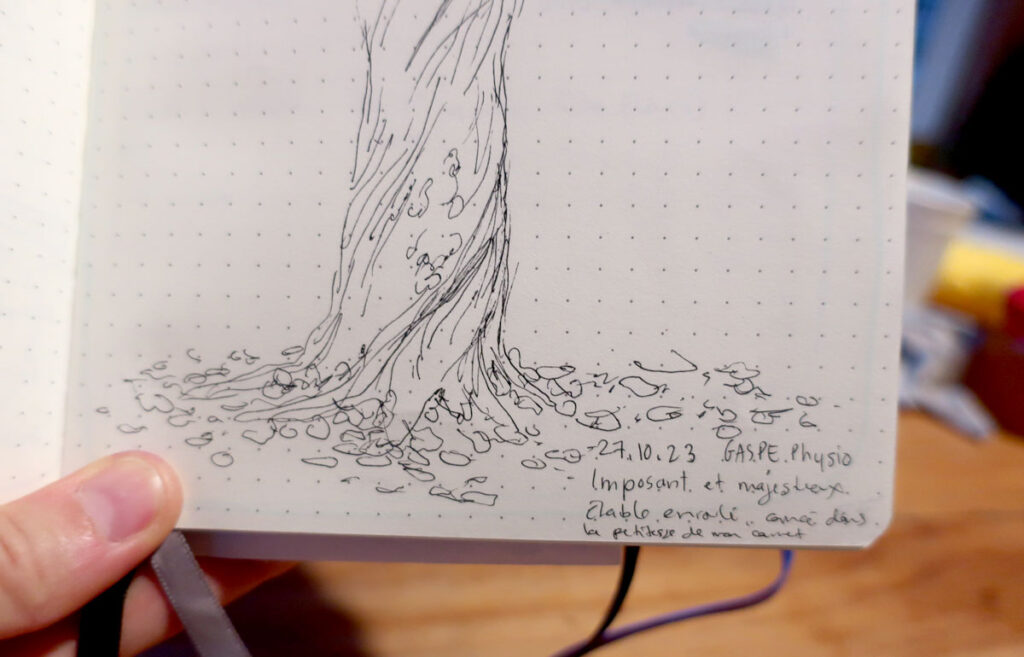 27.10.23 GASPE.Physio
Imposant et majestueux.
Erable enroulé.. coincé dans
la petitesse de mon carnet